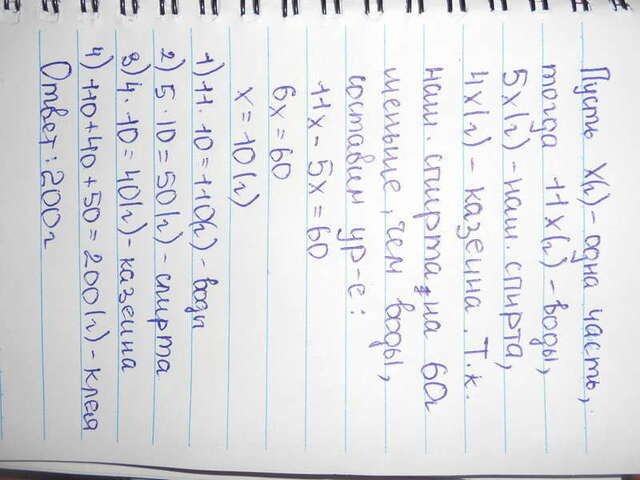 Пусть х(г)-одна часть,
тогда 11х(г)-воды,
5х(г)-наш. спирта,
4х(г)-казеина. Т.к.
наш. спирта на 60г
меньше, чем воды,
составим ур-е:
11х-5х=60
6х=60
х=10(г)
1) 11·10=110(г)-воды
2) 5·10=50(г)-спирта
3) 4·10=40(г)-казеина
4) 110+40+50=200(г)-клея
Ответ: 200г